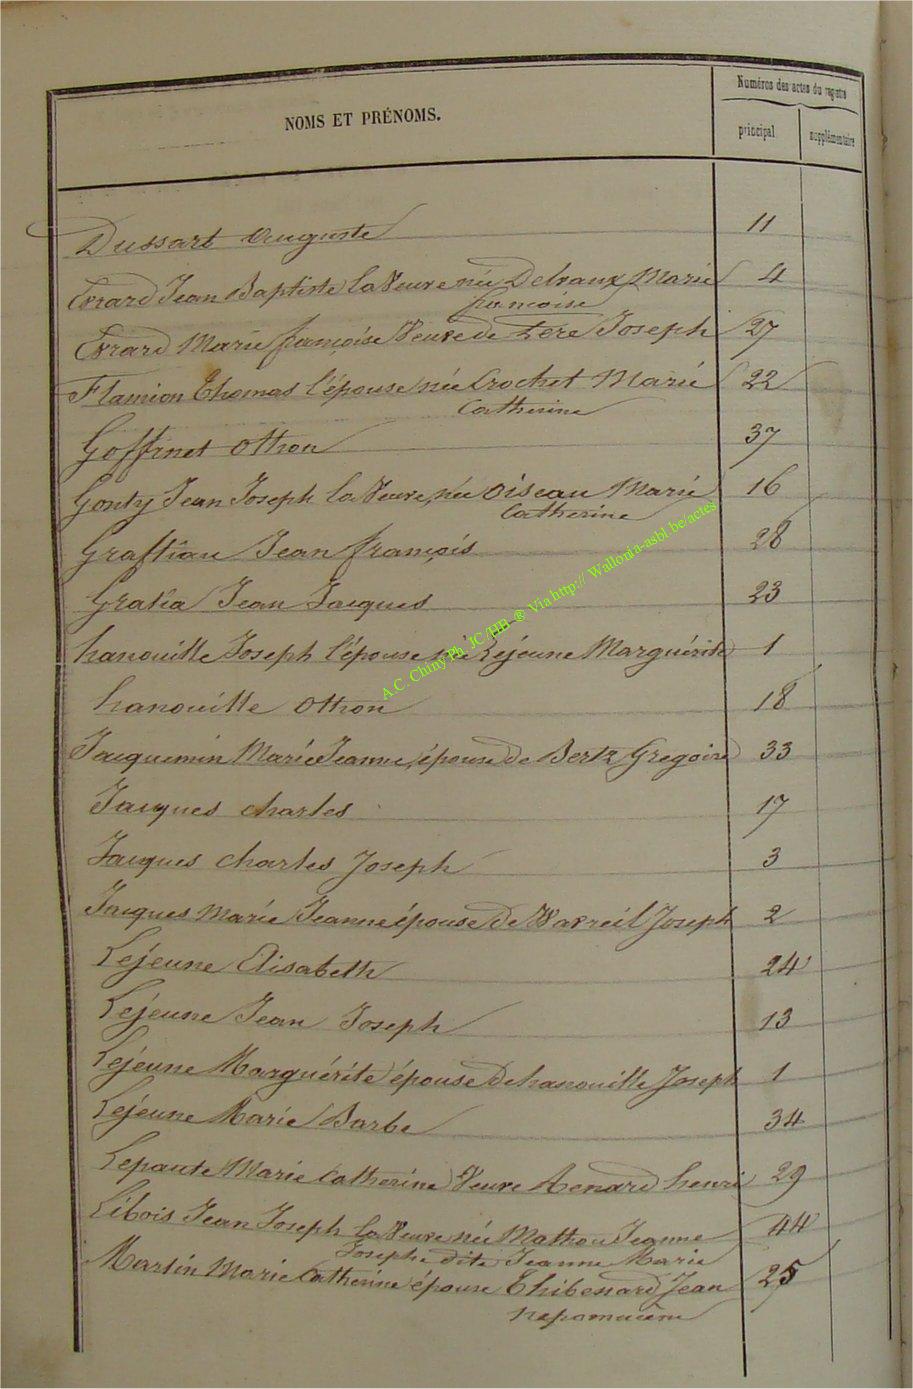 NOMS ET PRÉNOMS.
Numéros des actes du registre
principal
supplémentaire
Dussart Auguste 11
Evrard Jean Baptiste la Veuve née Delvaux Marie 4
françoise
Evrard Marie françoise Veuve de Joseph 27
Flamion Thomas l'épouse née Crochet Marie 22
Catherine
Goffinet Othon 37
Gonty Jean Joseph la Veuve née Oiseau Marie 16
Catherine
Graftiau Jean françois 28
Gratia Jean Jacques 23
hanouille Joseph l'épouse née Léjeune Marguérite 1
hanouille Othon 18
Jacquemin Marie Jeanne, épouse de Bertz Gregoire 33
Jacques charles 17
Jacques charles Joseph 3
Jacques Marie Jeanne épouse de Joseph 2
Léjeune Elisabeth 24
Léjeune Jean Joseph 13
Léjeune Marguérite épouse De hanouille Joseph 1
Léjeune Marie Barbe 34
Lepaute Marie Catherine Veuve Renard henri 29
Libois Jean Joseph la Veuve née Mathou Jeanne 44
Josephe dite Jeanne Marie
Martin Marie Catherine épouse Thibessard Jean 25
nepomucène
A.C. Chiny Ph. JC/HB ® Via http:// Wallonia-asbl.be/actes